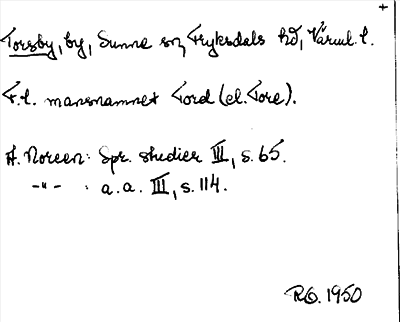 +
Torsby, by, Sunne sn, Fryksdals hd, Värml. l.
F.l. mansnamnet Tord (el. Tore).
A. Noreen: Spr. studier III, s. 65.
-"- : a.a. III, s. 114.
RO. 1950